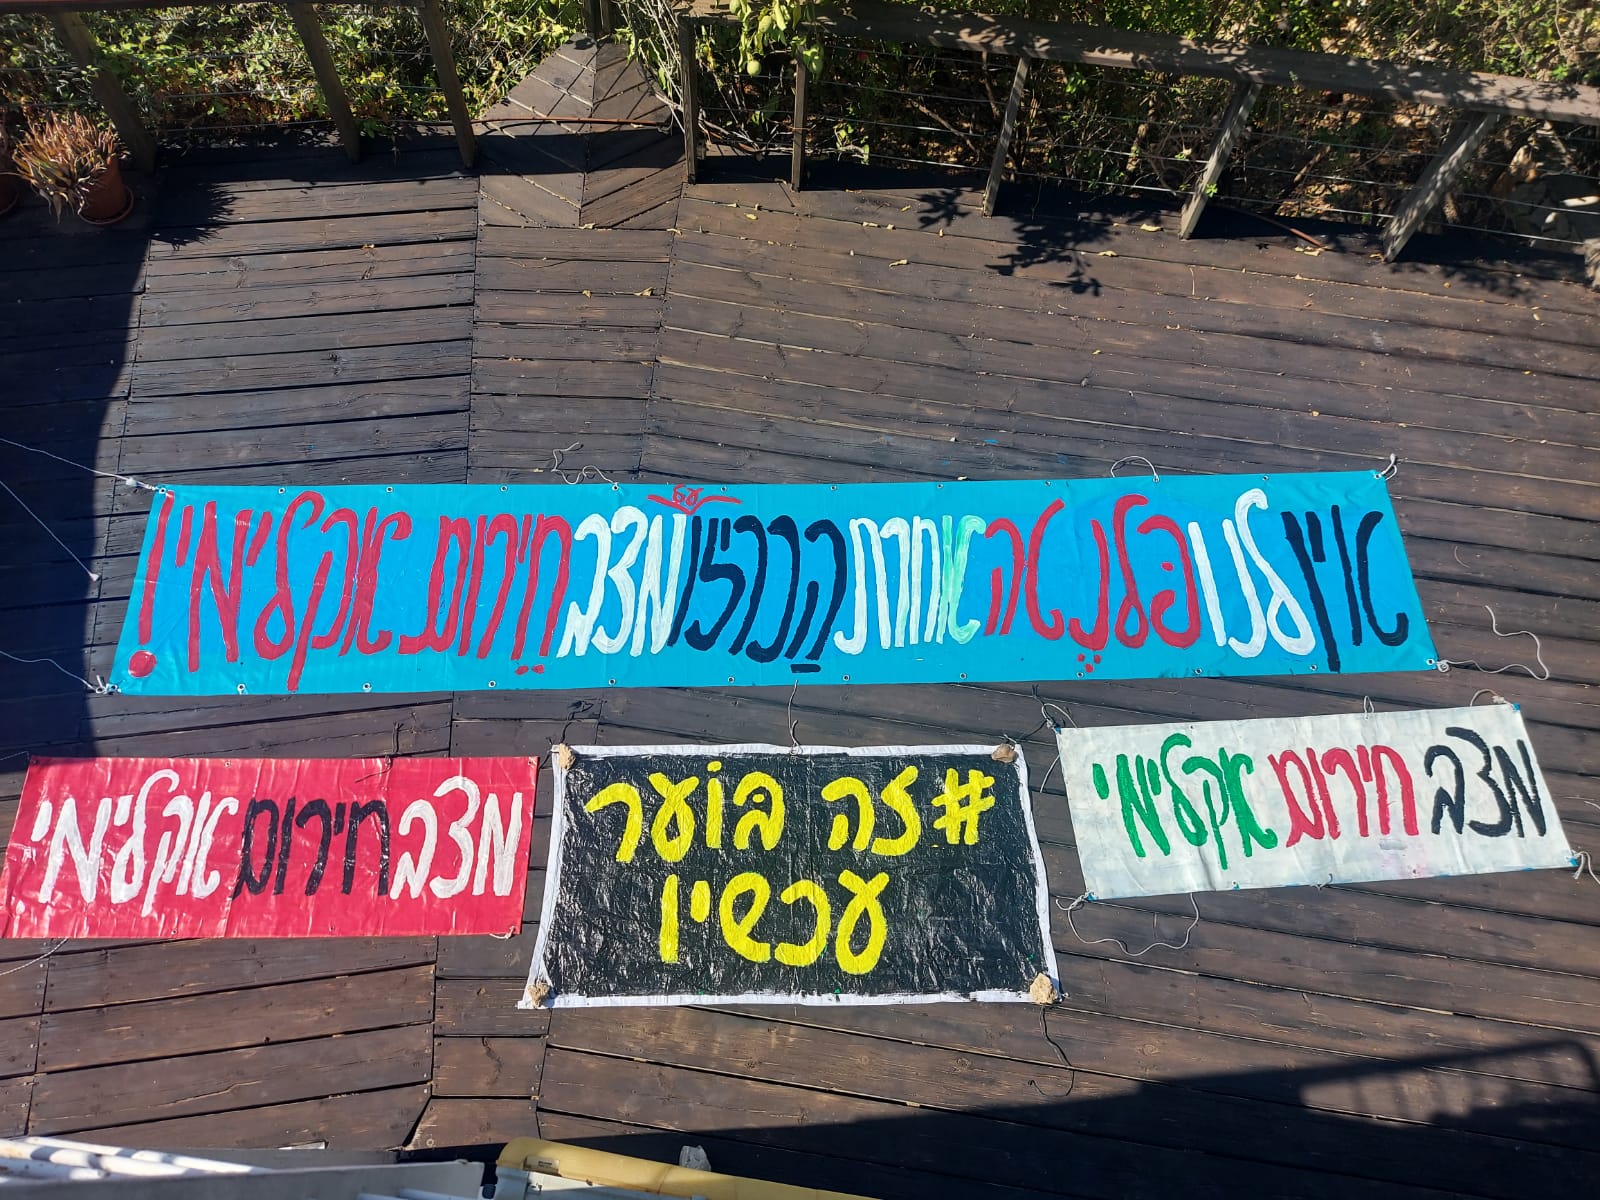 אין לנו פלנטה אחרת הכריזו על מצב חירום אקלימי!
מצב חירום אקלימי
#זה בוער
עכשיו
מצב חירום אקלימי